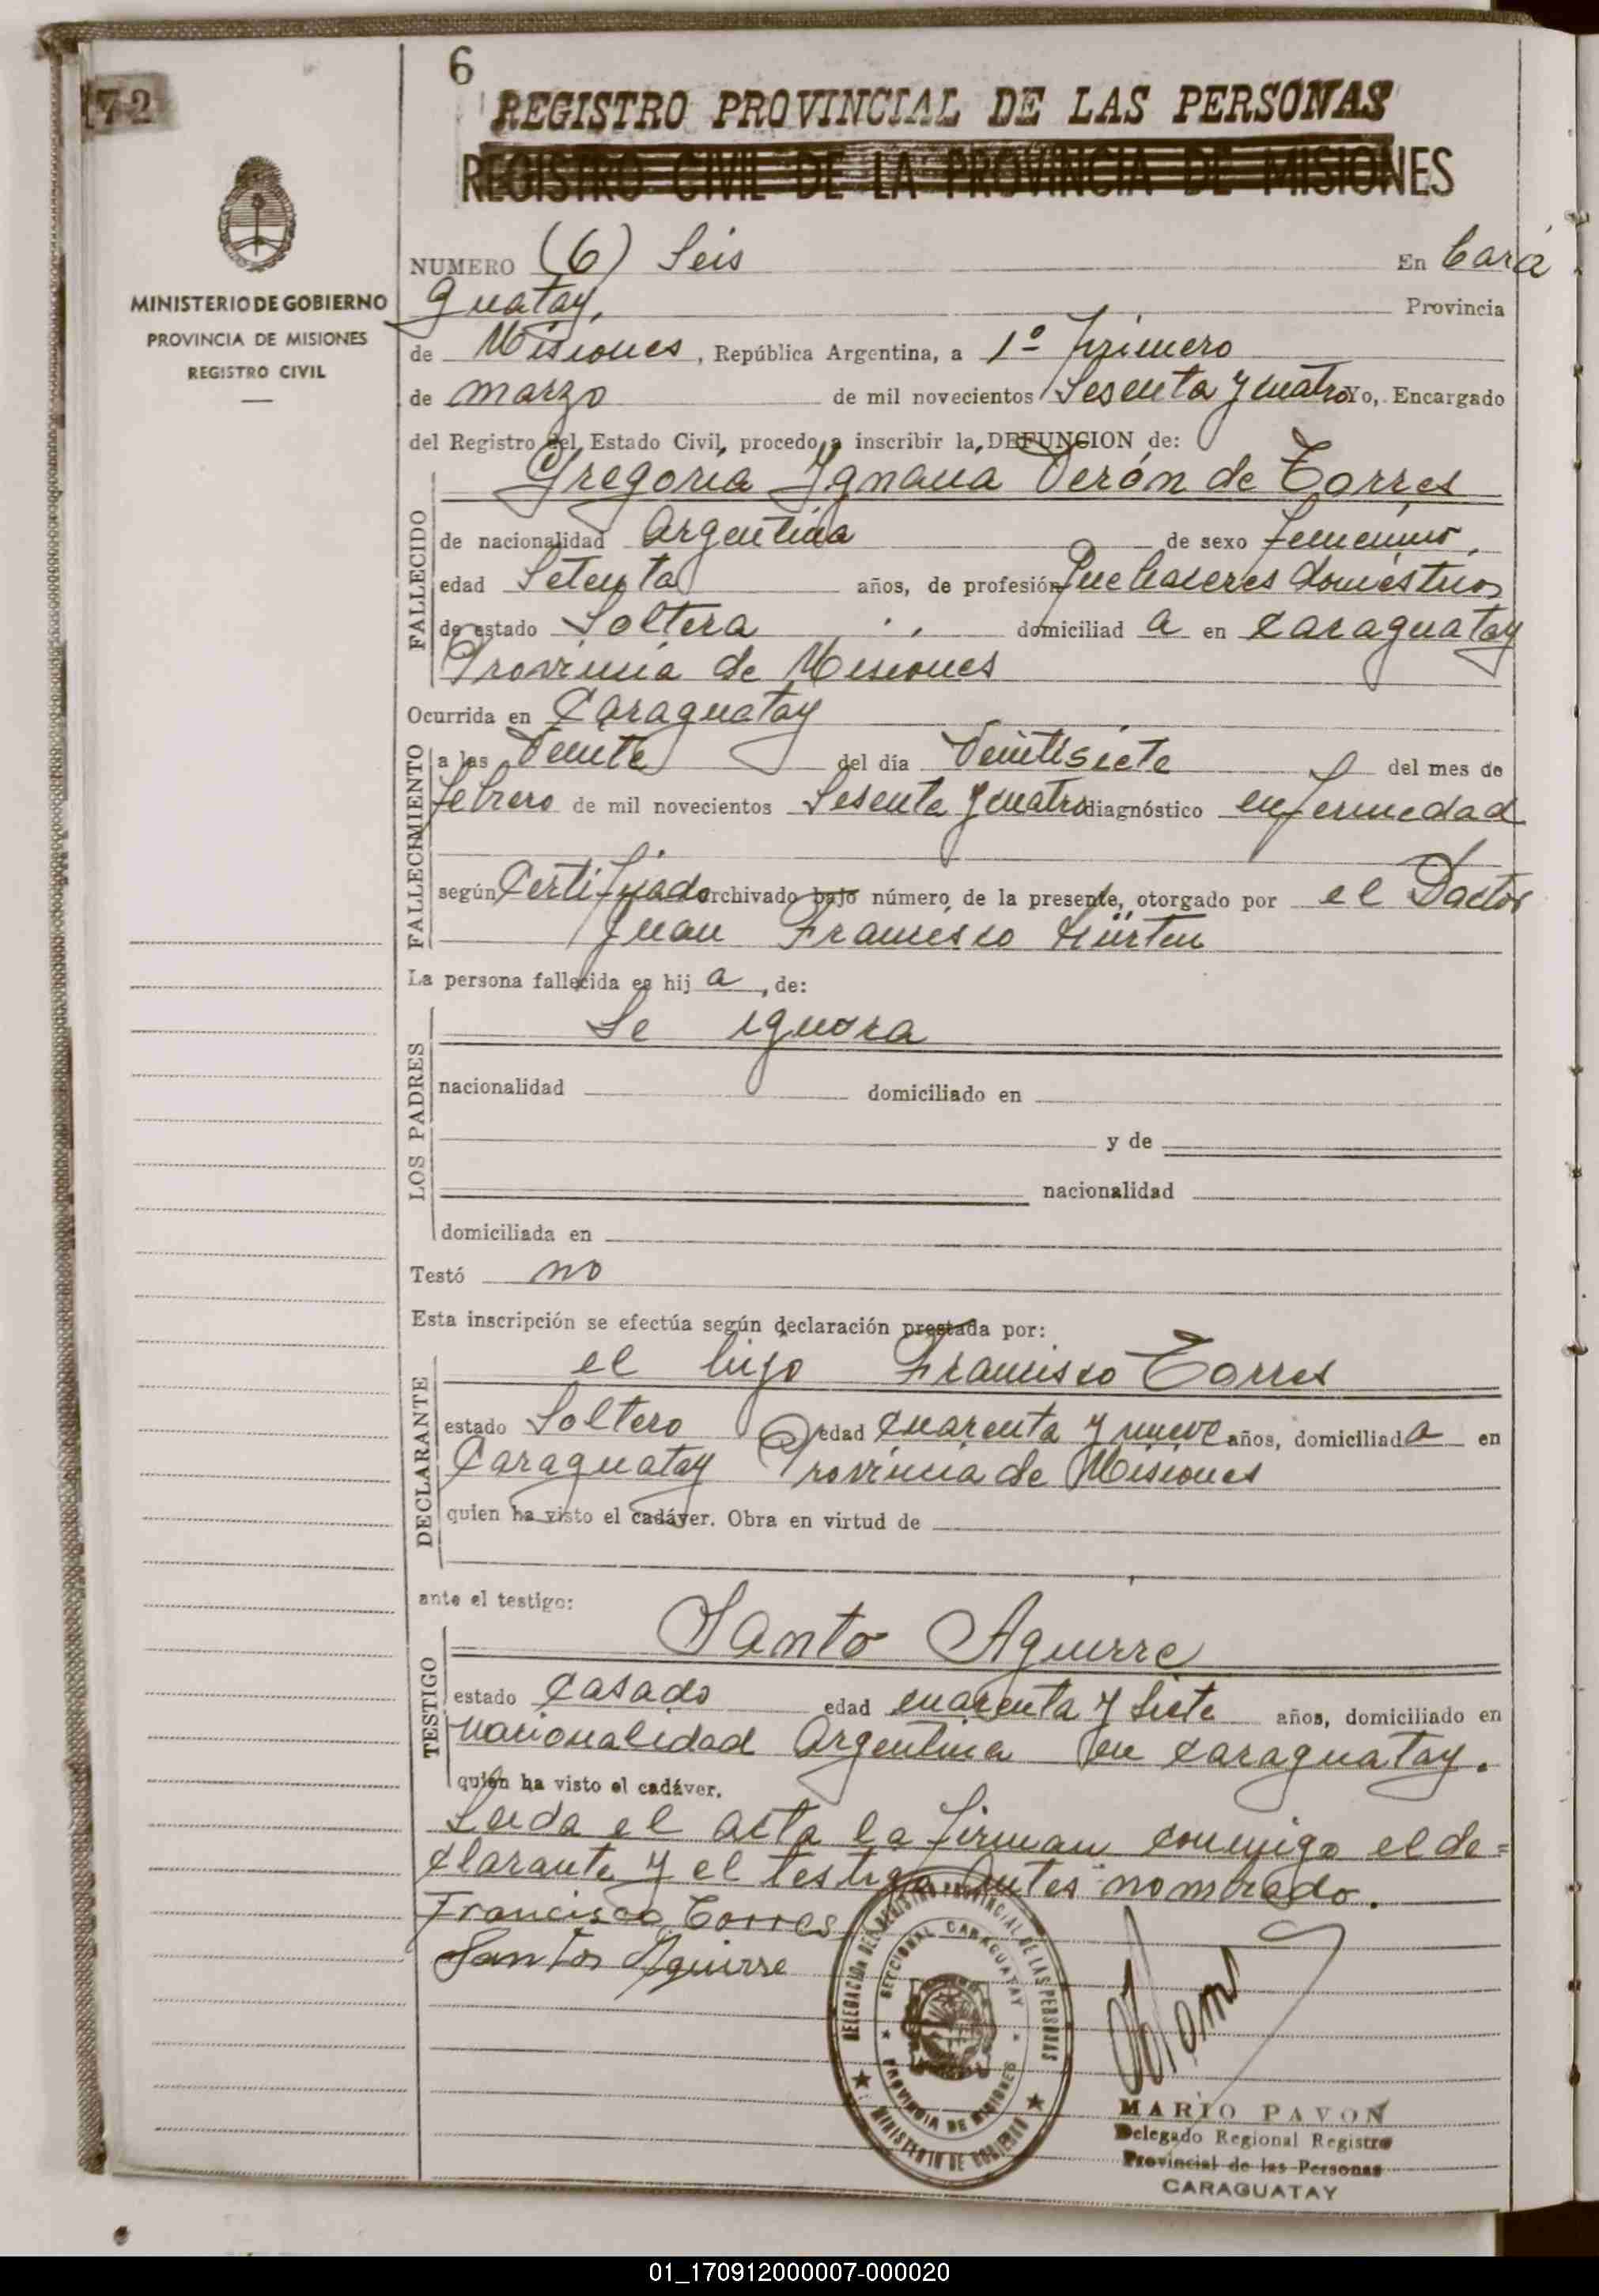 6
72
REGISTRO PROVINCIAL DE LAS PERSONAS
REGISTRO CIVIL DE LA PROVINCIA DE MISIONES
MINISTERIO DE GOBIERNO
PROVINCIA DE MISIONES
REGISTRO CIVIL
NUMERO (6) Seis En Cara
guatay, Provincia
de Misiones, República Argentina, a 1º primero
de marzo de mil novecientos Sesenta y cuatro Yo, Encargado
del Registro del Estado Civil, procedo a inscribir la DEFUNCION de:
Gregoria Ygnacia Verón de Torres
FALLECIDO
de nacionalidad Argentina de sexo femenino,
edad Setenta años, de profesión Quehaceres domésticos
de estado Soltera domiciliad a en Caraguatay
Provincia de Misiones
Ocurrida en Caraguatay
FALLECIMIENTO
a las Veinte del día Veintisiete del mes de
febrero de mil novecientos Sesenta y cuatro diagnóstico enfermedad
según Certificado archivado bajo número de la presente, otorgado por el Doctor
Juan Francisco Kürten
La persona fallecida es hij a, de:
LOS PADRES
Se ignora
nacionalidad domiciliado en
y de
nacionalidad
domiciliada en
Testó no
Esta inscripción se efectúa según declaración prestada por:
DECLARANTE
el hijo Francisco Torres
estado Soltero edad cuarenta y nueve años, domiciliad a en
Caraguatay Provincia de Misiones
quien ha visto el cadáver. Obra en virtud de
ante el testigo:
TESTIGO
Santo Aguirre
estado Casado edad cuarenta y siete años, domiciliado en
nacionalidad Argentina en Caraguatay.
quién ha visto el cadáver.
Leida el acta la firman conmigo el de=
clarante y el testigo Antes nombrado.
Francisco Torres
Santos Aguirre
DELEGACION DEL REGISTRO PROVINCIAL DE LAS PERSONAS
SECCIONAL CARAGUATAY
PROVINCIA DE MISIONES
MINISTERIO DE GOBIERNO
MARIO PAVON
Delegado Regional Registro
Provincial de las Personas
CARAGUATAY
01_170912000007-000020